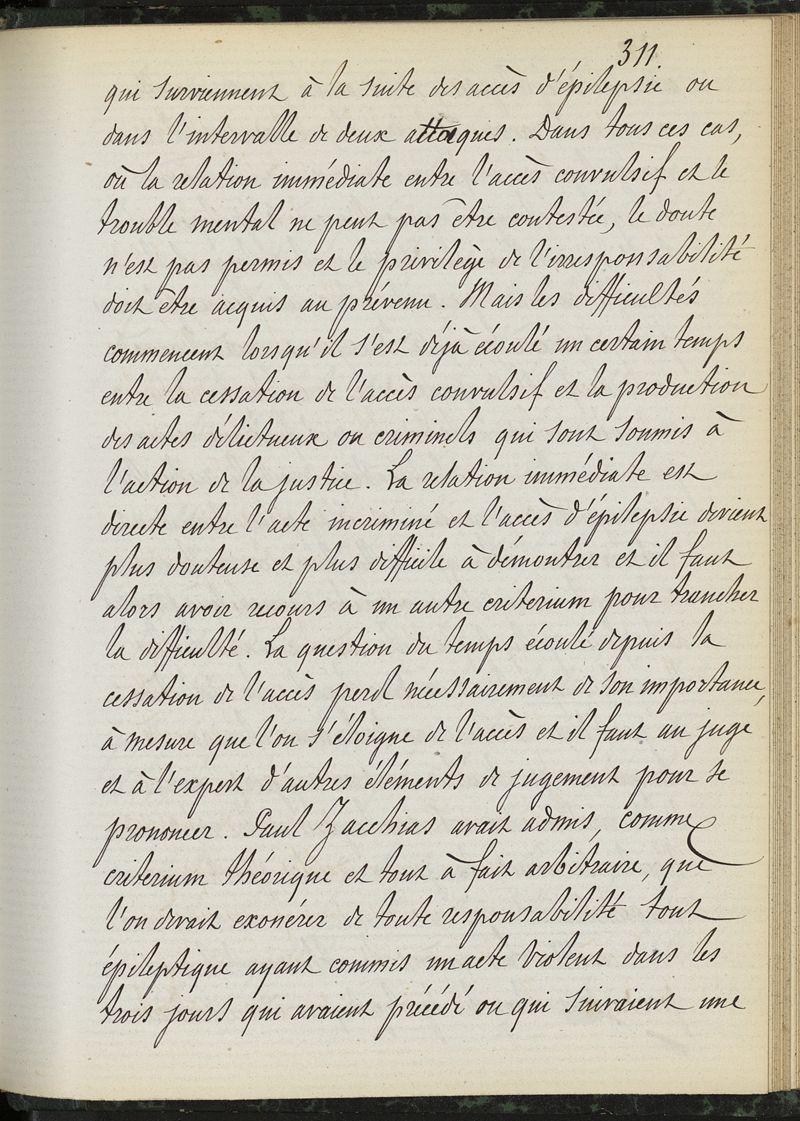 311
qui surviennent à la suite des accès d'épilepsie ou
dans l'intervalle de deux attaques. Dans tous ces cas,
où la relation immédiate entre l'accès convulsif et le
trouble mental ne peut pas être contestée, le doute
n'est pas permis et le privilège de l'irresponsabilité
doit être acquis au prévenu. Mais les difficultés
commencent lorsqu'il s'est déjà écoulé un certain temps
entre la cessation de l'accès convulsif et la production
des actes délictueux ou criminels qui sont soumis à
l'action de la justice. La relation immédiate est
directe entre l'acte incriminé et l'accès d'épilepsie devient
plus douteuse et plus difficile à démontrer et il faut
alors avoir recours à un autre criterium pour trancher
la difficulté. La question du temps écoulé depuis la
cessation de l'accès perd nécessairement de son importance,
à mesure que l'on s'éloigne de l'accès et il faut au juge
et à l'expert d'autres éléments de jugement pour se
prononcer. Paul Zacchias avait admis, comme
criterium théorique et tout à fait arbitraire, que
l'on devait exonérer de toute responsabilité tout
épileptique ayant commis un acte violent dans les
trois jours qui avaient précédé ou qui suivaient une